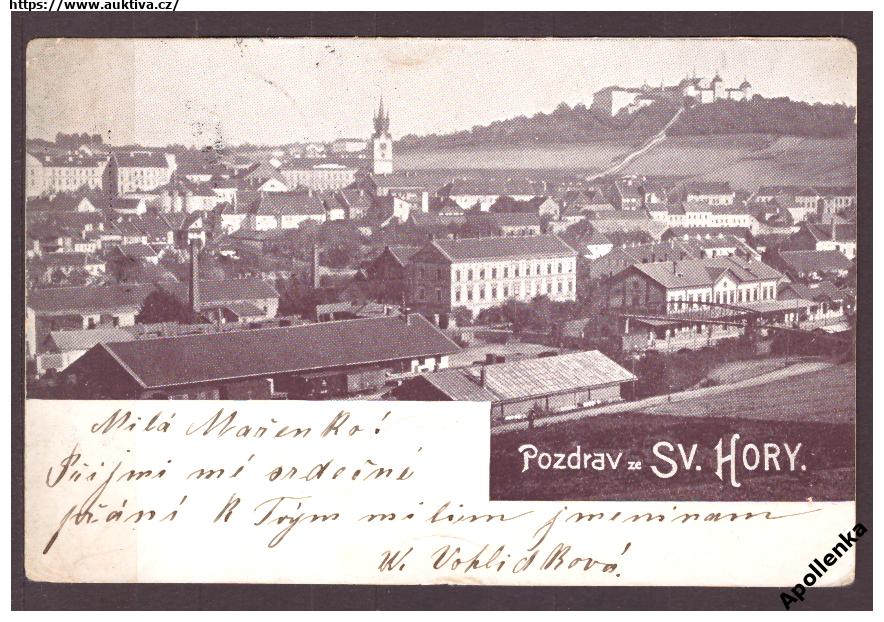 https://www.auktiva.cz/
Pozdrav ze SV. HORY.
Milá Mařenko!
Přijmi mé srdečné
přání k Tvým milým jmeninám
Vohlidková.
Apollenka